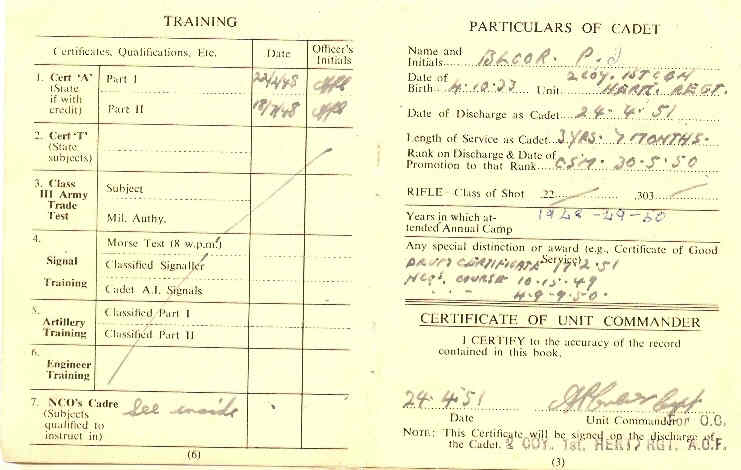 TRAINING
Certificates, Qualifications, Etc. Date Officer's Initials
1. Cert 'A' (State if with credit) Part I 22/2/48
Part II 18/7/48
2. Cert 'T' (State subjects)
3. Class III Army Trade Test Subject
Mil. Authy.
4. Signal Training Morse Test (8 w.p.m.)
Classified Signaller
Cadet A.I. Signals
5. Artillery Training Classified Part I
Classified Part II
6. Engineer Training
7. NCO's Cadre (Subjects qualified to instruct in) See inside
(6)
PARTICULARS OF CADET
Name and Initials P. J
Date of Birth 4.10.33 Unit 2 COY. 1ST HERTS. REGT.
Date of Discharge as Cadet 24. 4. 51
Length of Service as Cadet 3 YRS. 7 MONTHS.
Rank on Discharge & Date of
Promotion to that Rank CSM. 30.5.50
RIFLE - Class of Shot .22 .303
Years in which at-
tended Annual Camp 1948 -49 -50
Any special distinction or award (e.g., Certificate of Good
Service)
DRUM CERTIFICATE 17.2.51
NCOs. COURSE 10-15.4.49
" " 4.9-9.50.
CERTIFICATE OF UNIT COMMANDER
I CERTIFY to the accuracy of the record
contained in this book.
24.4.51 Capt
Date Unit Commander or O.C.
NOTE: This Certificate will be signed on the discharge of
the Cadet. 2 COY. 1st. HERTS RGT. A.C.F.
(3)